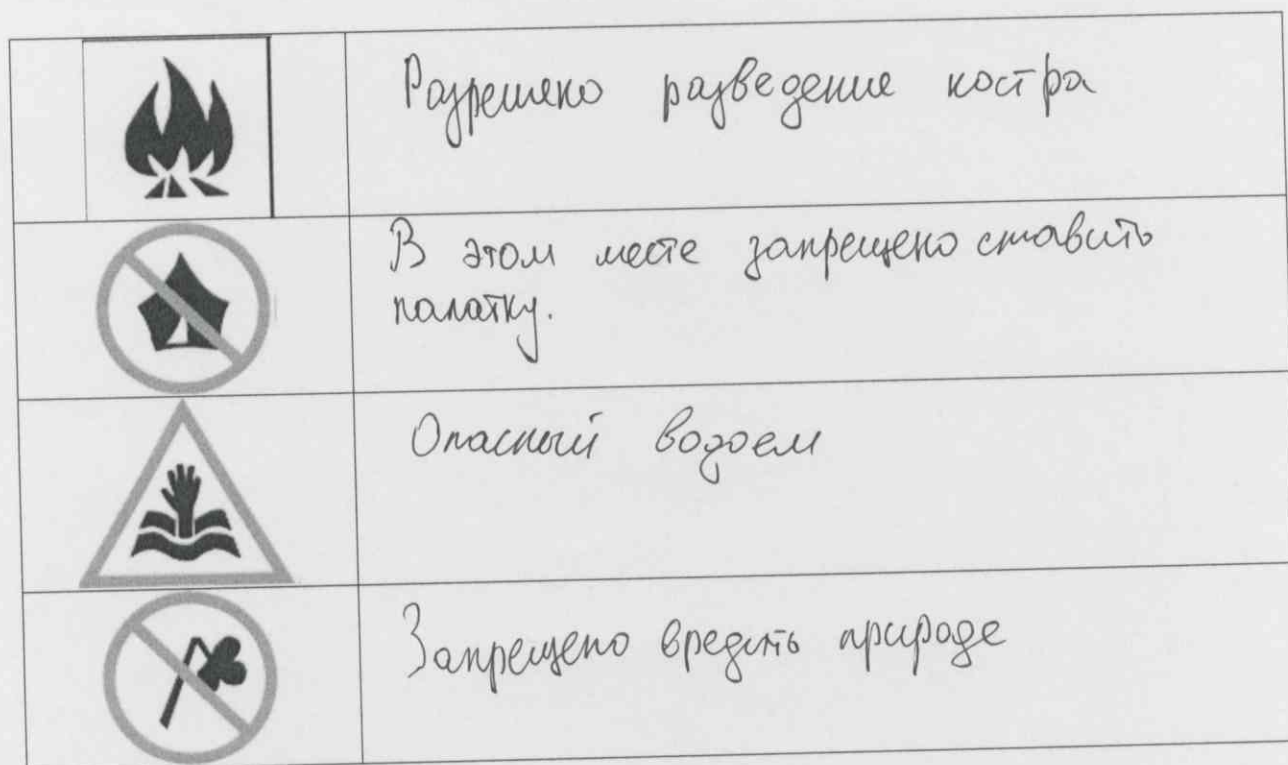 Разрешено разведение костра
В этом месте запрещено ставить
палатку.
Опасный водоем
Запрещено вредить природе